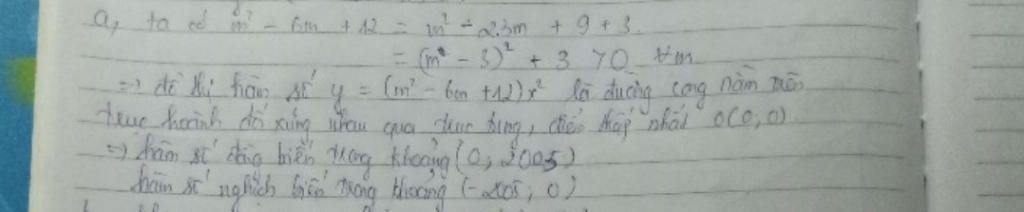 a, ta có m² - 6m + 12 = m² - 2.3m + 9 + 3.
= (m - 3)² + 3 > 0 ∀m
=> đồ thị hàm số y = (m² - 6m + 12)x² là đường cong nằm trên
trục hoành đối xứng nhau qua trục tung, điểm thấp nhất O(0;0)
=> hàm số đồng biến trong khoảng (0; 2005)
hàm số nghịch biến trong khoảng (-2005; 0)